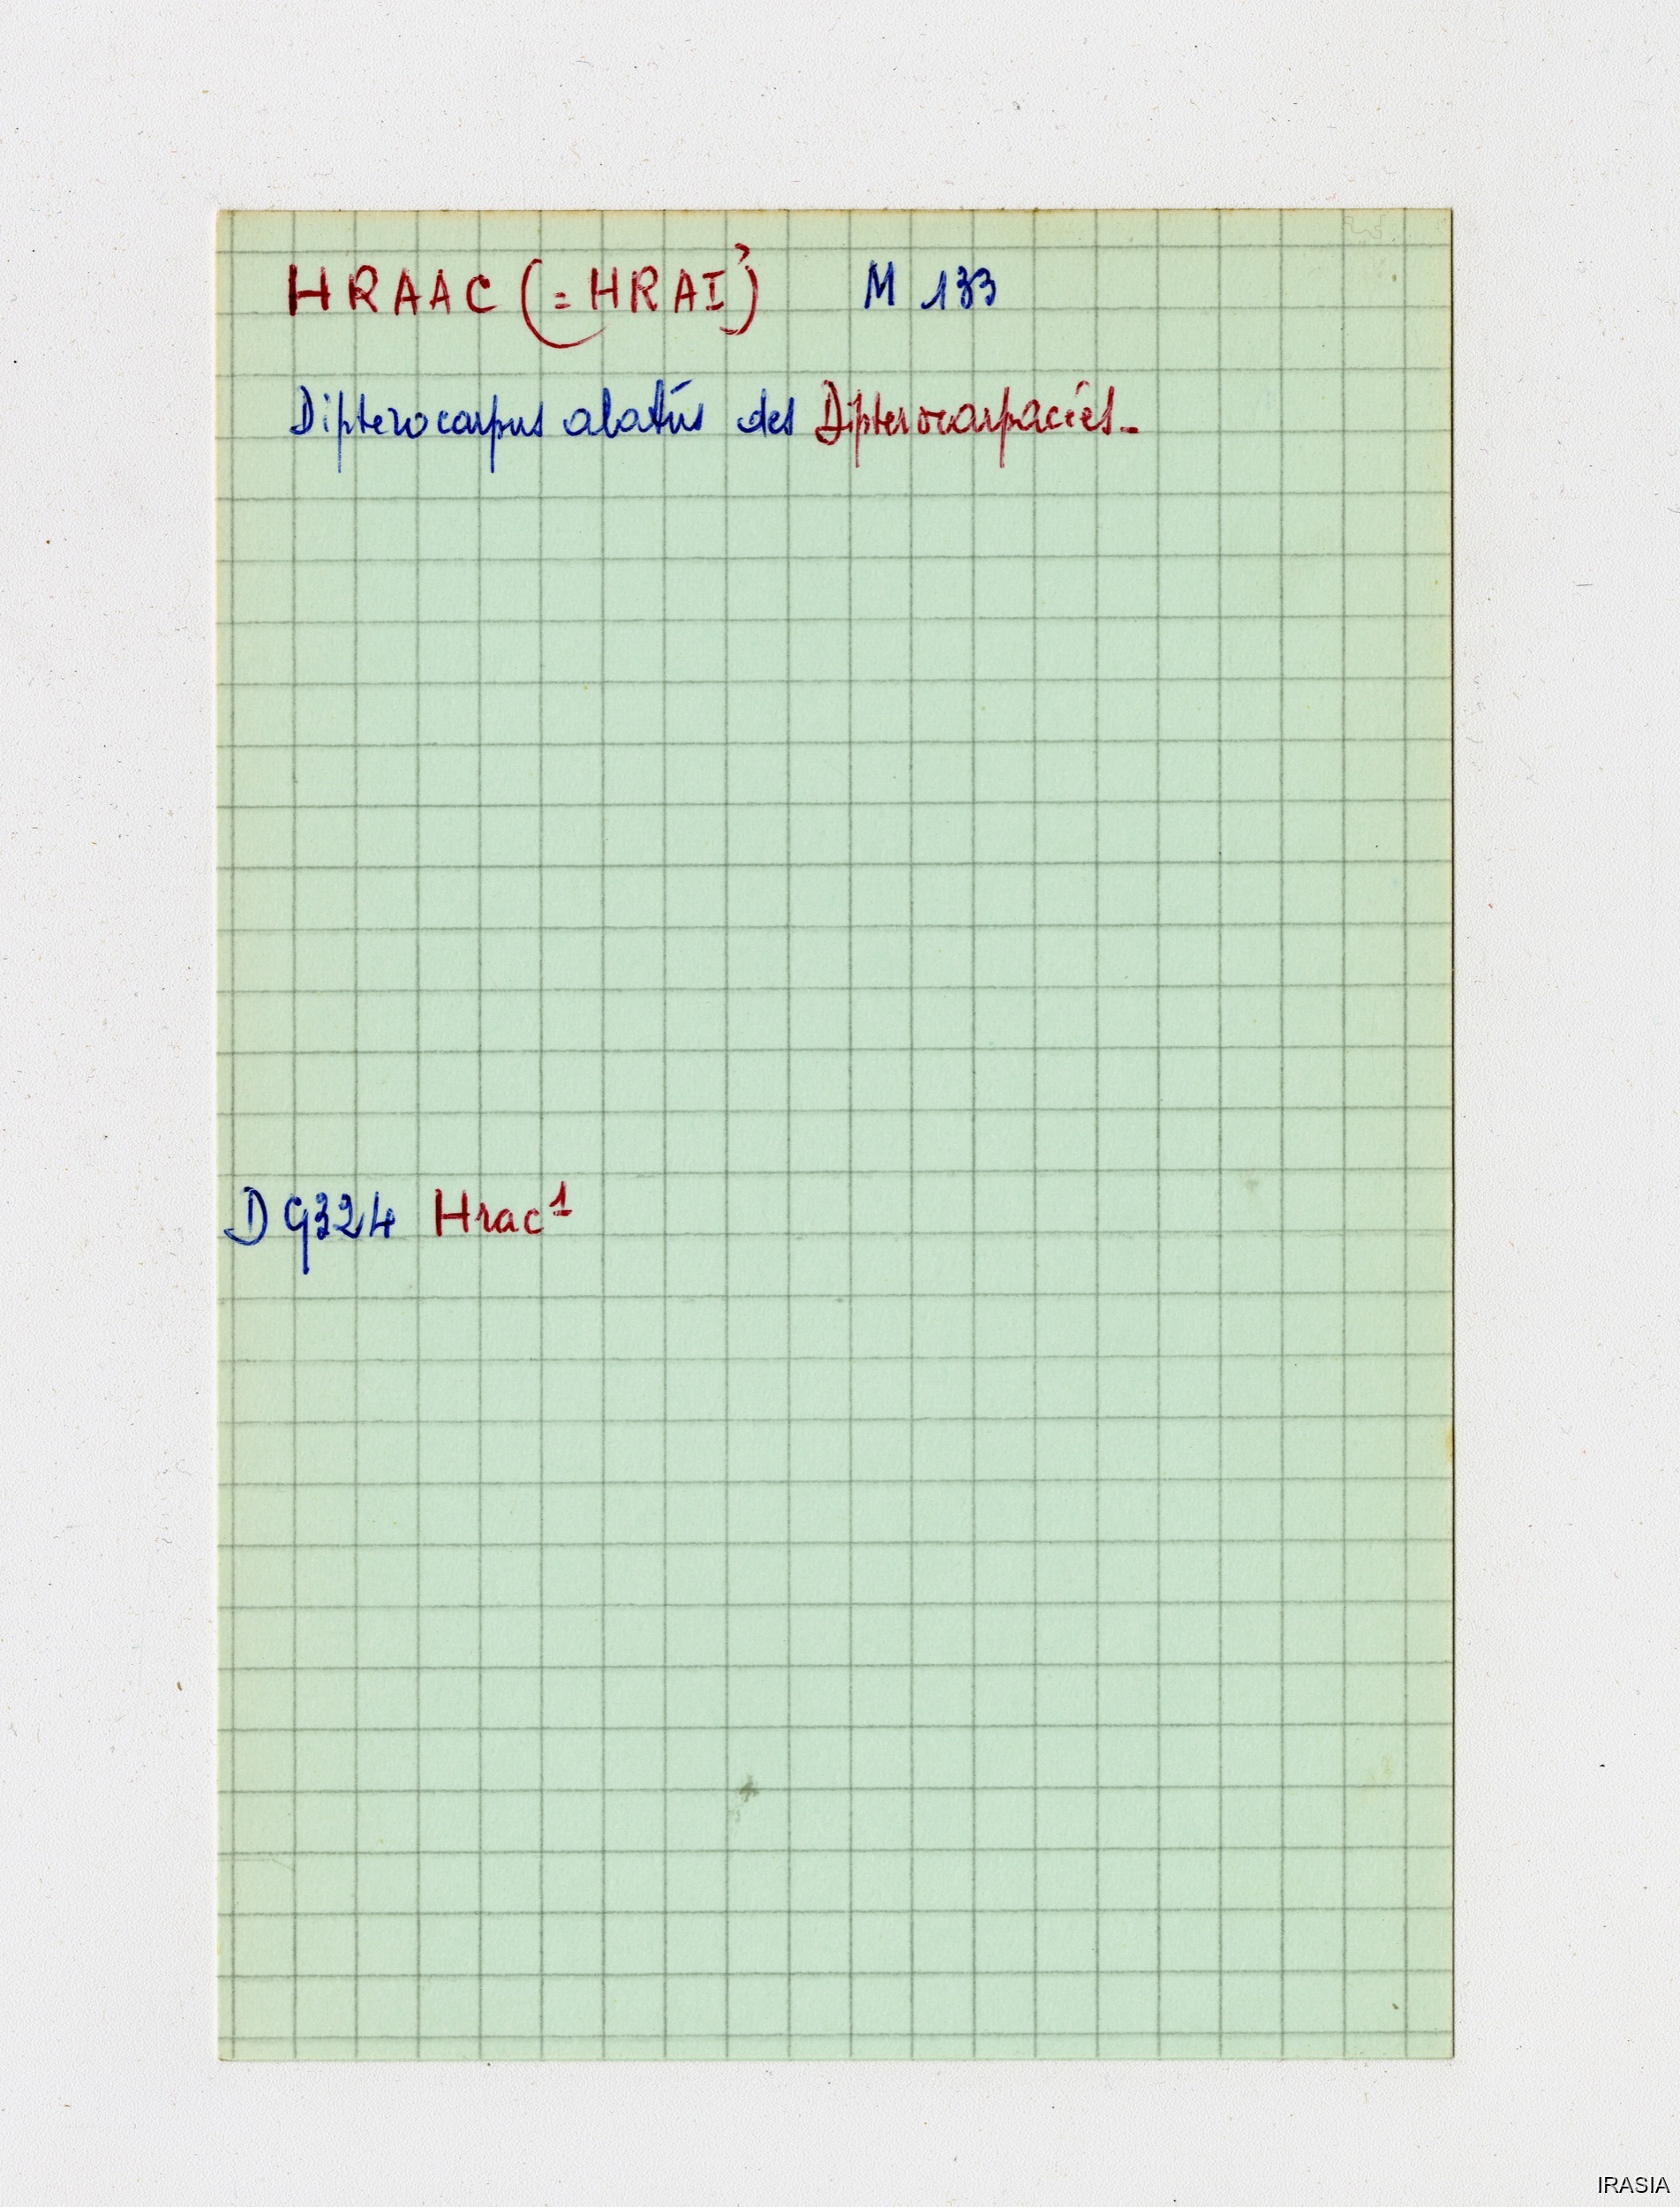 HRAAC (= HRAI') M 133
Dipterocarpus alatús des Dipterocarpacies.
D 9324 Hrac¹
IRASIA